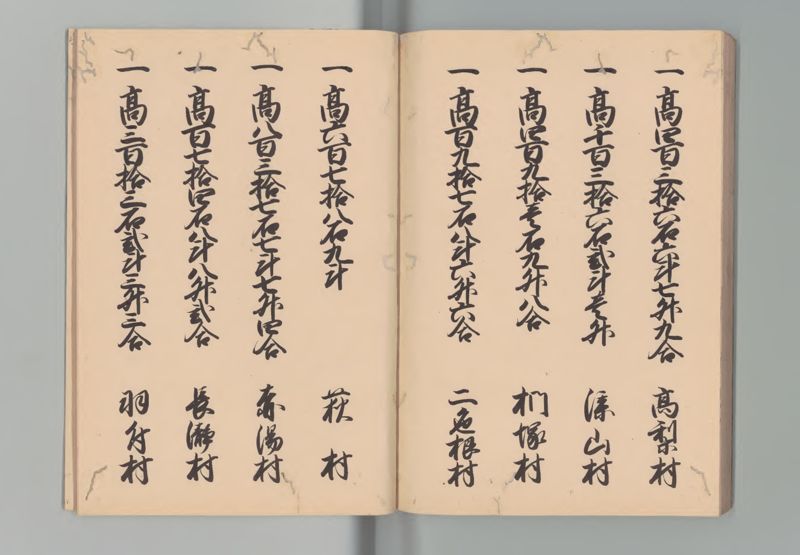 一 高四百三拾六石六斗七升九合 高梨村
一 高千百三拾六石弐斗壱升 漆山村
一 高四百九拾壱石九升八合 椚塚村
一 高百九拾七石八斗六升六合 二色根村
一 高六百七拾八石九斗 萩村
一 高八百三拾七石七斗七升四合 赤湯村
一 高百七拾四石八斗八升弐合 長瀞村
一 高三百拾三石弐斗三升三合 羽付村